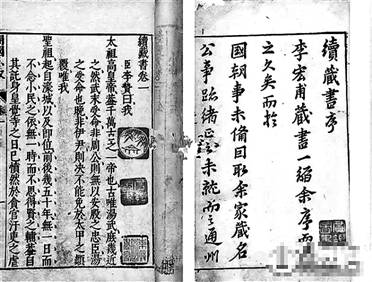 續藏書序
李宏甫藏書一編余序而
之久矣而於
國朝事未備因取余家藏名
公事蹟緒正之未就而之通州
續藏書卷一
臣李贄曰我
太祖高皇帝蓋千萬古之一帝也古唯湯武庶幾近
之然武未受命非周公則無以安殷之忠臣湯
之受命也晚非伊尹則決不能免於太甲之顛
覆唯我
聖祖起自濠城以及即位前後幾五十年無一日而
不念小民之依無一時而不思得賢之輔蓋自
其託身皇覺寺之日已憤然於貪官汙吏之虐